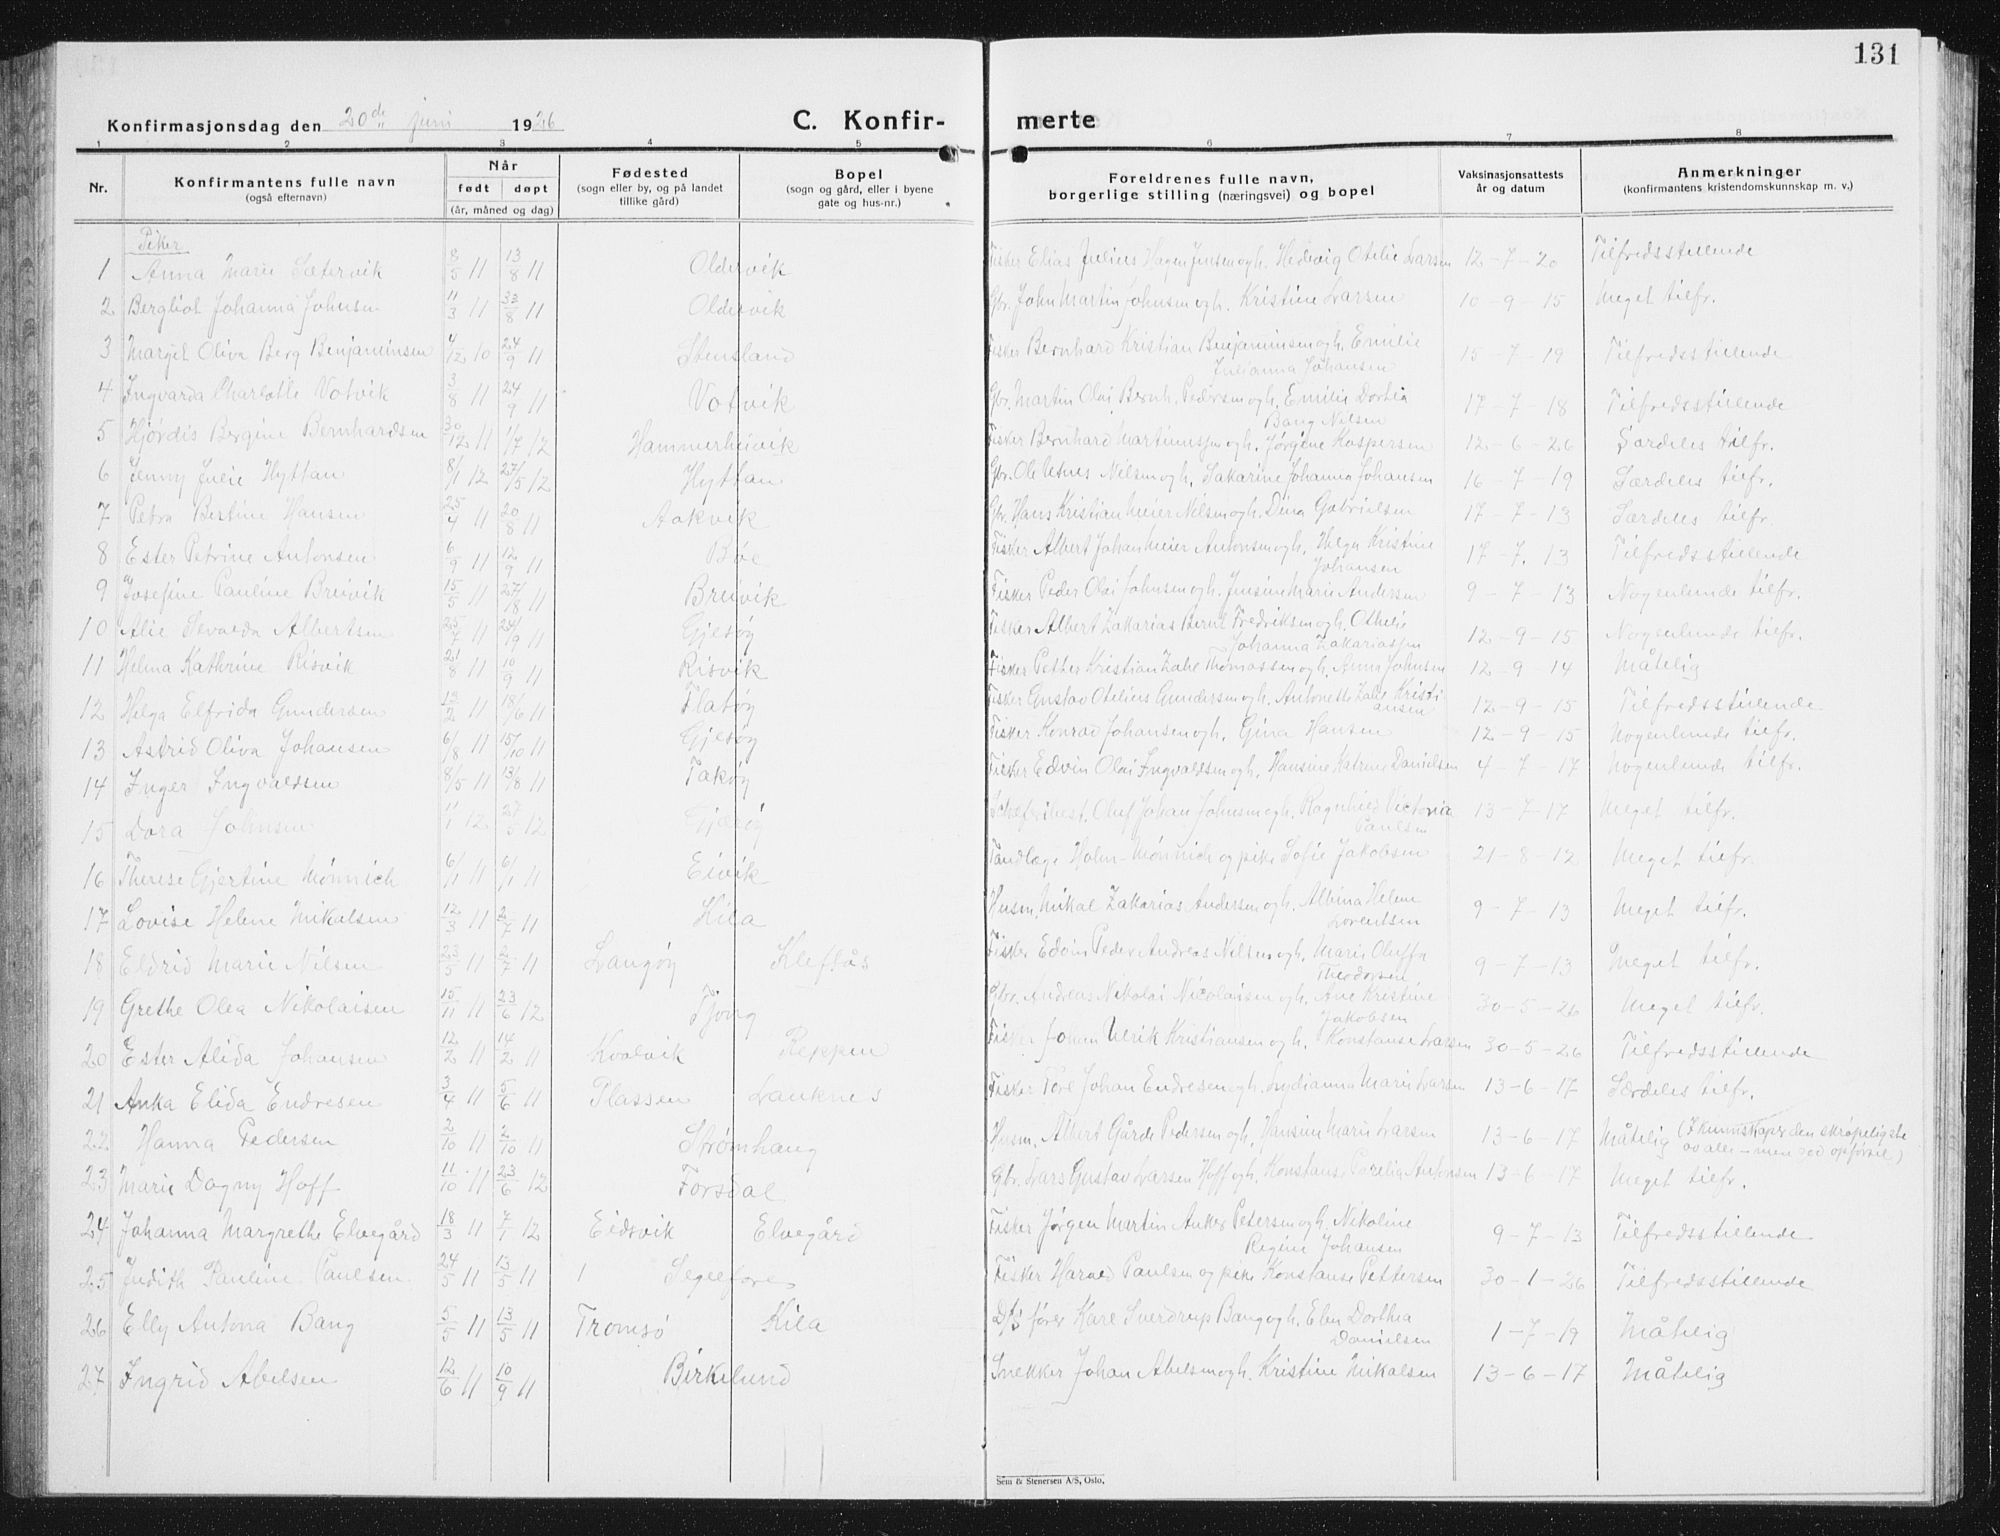 131
Konfirmasjonsdag den 20de juni 1926 C. Konfir- merte
1 2 3 4 5 6 7 8
Nr. Konfirmantens fulle navn (også efternavn) Når født døpt (år, måned og dag) Fødested (sogn eller by, og på landet tillike gård) Bopel (sogn og gård, eller i byene gate og hus-nr.) Foreldrenes fulle navn, borgerlige stilling (næringsvei) og bopel Vaksinasjonsattests år og datum Anmerkninger (konfirmantens kristendomskunnskap m. v.)
Piker
1 Anna Marie Sætervik 8/5 11 13/8 11 Oldervik Fisker Elias Julius Hagen Jensen og h. Hedvig Otelie Larsen 12-7-20 Tilfredsstillende
2 Bergliot Johanna Johnsen 11/3 11 8 11 Oldervik Gbr. John Martin Johnsen og h. Kristine Larsen 10-9-15 Meget tilfr.
3 Margit Oliva Berg Benjaminsen 4/12 10 24/9 11 Stensland Fisker Bernhard Kristian Benjaminsen og h. Emilie Julianna Johansen 15-7-19 Tilfredsstillende
4 Ingvarda Charlotte Votvik 3/8 11 24/9 11 Votvik Gbr. Martin Olai Bernh. Pedersen og h. Emilie Dorthea Bang Nilsen 17-7-18 Tilfredsstillende
5 Hjørdis Bergine Bernhardsen 30/12 11 1/7 12 Hammerheivik Fisker Bernhard Martinussen og h. Jørgine Kaspersen 12-6-26 Særdeles tilfr.
6 Jenny Julie Hyttan 8/1 12 27/5 12 Hyttan Gbr. Ole Nilsen og h. Sakarine Johanna Johansen 16-7-19 Særdeles tilfr.
7 Petra Bertine Hansen 25/4 11 20/8 11 Aakvik Gbr. Hans Kristian Meier Nilsen og h. Dina Gabrielsen 17-7-13 Særdeles tilfr.
8 Ester Petrine Antonsen 6/9 11 12/9 11 Bøe Fisker Albert Johan Meier Antonsen og h. Helga Kristine Johansen 17-7.13 Tilfredsstillende
9 Josefine Pauline Breivik 15/5 11 27/18 11 Breivik Fisker Peder Olai Johnsen og h. Jensine Marie Andersen 9-7-13 Nogenlunde tilfr.
10 Alie Sevalda Albertsen 25/7 11 24/9 11 Gjesøy Fisker Albert Zakarias Bernt Fredriksen og h. Othelie Johanna Zakariassen 12-9-15 Nogenlunde tilfr.
11 Helma Kathrine Risvik 21/8 11 10/9 11 Risvik Fisker Petter Kristian Zahl Thomassen og h. Anna Johnsen 12-9-14 Måtelig
12 Helga Elfrida Gundersen 12/2 11 18/6 11 Flatøy Fisker Gustav Otelius Gundersen og h. Antonette Zahl Kristiansen 12-9-15 Tilfredsstillende
13 Astrid Oliva Johansen 6/8 11 15/10 11 Gjesøy Fisker Konrad Johansen og h. Gina Hansen 12-9-15 Nogenlunde tilfr.
14 Inger Ingvaldsen 8/5 11 13/8 11 Takøy Fisker Edvin Olai Ingvaldsen og h. Hansine Katrine Danielsen 4-7-17 Nogenlunde tilfr.
15 Dora Johnsen 11/1 12 27/5 12 Gjesøy Oluf Johan Johnsen og h. Ragnhild Victoria Paulsen 13-7-17 Meget tilfr.
16 Therese Gjertine Mönnich 6/1 11 6/1 11 Eivik Tandlæge Holm-Mönnich og pike Sofie Jakobsen 21-8-12 Meget tilfr.
17 Lovise Helene Mikalsen 12/3 11 2/7 11 Kila Husm. Mikal Zakarias Andersen og h. Albina Helene Lorentsen 9-7-13 Meget tilfr.
18 Eldrid Marie Nilsen 23/5 11 2/7 11 Langøy Kleflås Fisker Edvin Peder Andreas Nilsen og h. Marie Oluffa Theodorsen 9-7-13 Meget tilfr.
19 Grethe Olea Nikolaisen 15/11 11 23/6 12 Tjong Gbr. Andreas Nikolai Nicolaisen og h. Ane Kristine Jakobsen 30-5-26 Meget tilfr.
20 Ester Alida Johansen 12/2 11 14/2 11 Kvalvik Reppen Fisker Johan Ulrik Kristiansen og h. Konstanse Larsen 30-5-26 Tilfredsstillende
21 Anka Elida Endresen 3/4 11 5/6 11 Plassen Lauknes Fisker Tore Johan Endresen og h. Lydianna Marie Larsen 13-6-17 Særdeles tilfr.
22 Hanna Pedersen 2/10 11 2/10 11 Strømhaug Husm. Albert Gårde Pedersen og h. Hansine Marie Larsen 13-6-17 Måtelig (I kunnskaper den skrøpeligste av alle - men god opførsel)
23 Marie Dagny Hoff 11/10 11 23/6 12 Forsdal Gbr. Lars Gustav Larsen Hoff og h. Konstanse Parelia Antonsen 13-6-17 Meget tilfr.
24 Johanna Margrethe Elvegård 18/3 11 7/1 12 Eidsvik Elvegård Fisker Jørgen Martin Anker Petersen og h. Nikoline Regine Johansen 9-7-13 Tilfredsstillende
25 Judith Pauline Paulsen 24/5 11 13/5 11 Segelfore Fisker Harald Paulsen og pike Konstanse Pettersen 30-1-26 Tilfredsstillende
26 Elly Antona Bang 5/5 11 13/5 11 Tromsø Kila D/S fører Karl Sverdrup Bang og h. Elen Dorthea Danielsen 1-7-19 Måtelig
27 Ingrid Abelsen 12/6 11 10/9 11 Birkelund Snekker Johan Abelsen og h. Kristine Mikalsen 13-6-17 Måtelig
Sem & Stenersen A/S, Oslo.